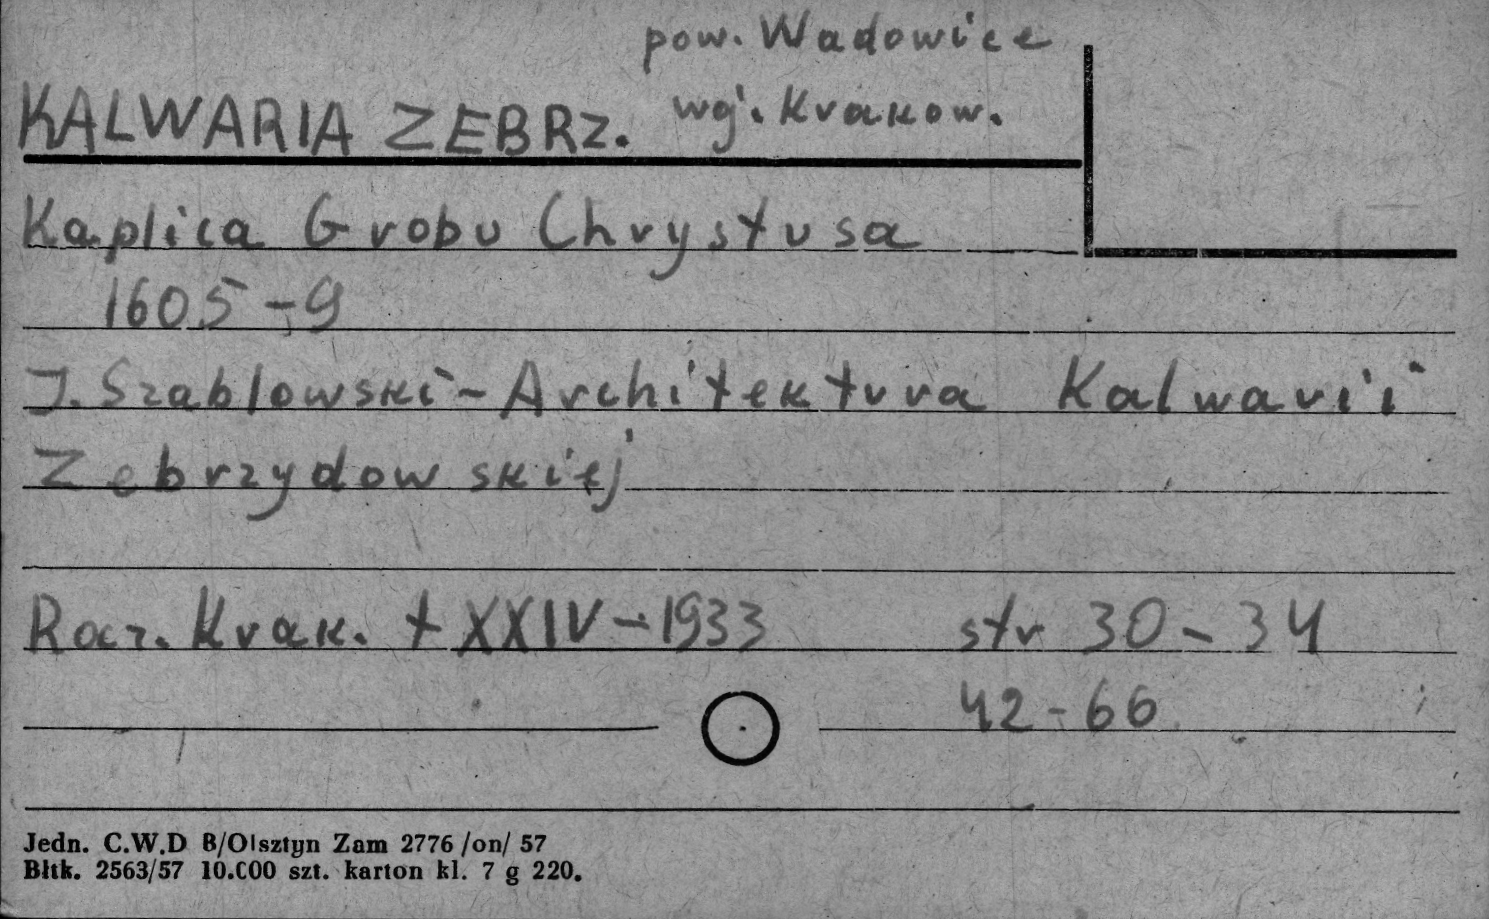 pow. Wadowice
KALWARIA ZEBRZ. woj. Krakow.
Kaplica Grobu Chrystusa
1605-9
J. Szablowski - Architektura Kalwarii
Zebrzydowskiej
Rocz. Krak. t XXIV - 1933 str 30-34
42-66
Jedn. C.W.D B/Olsztyn Zam 2776 /on/ 57
Błtk. 2563/57 10.000 szt. karton kl. 7 g 220.